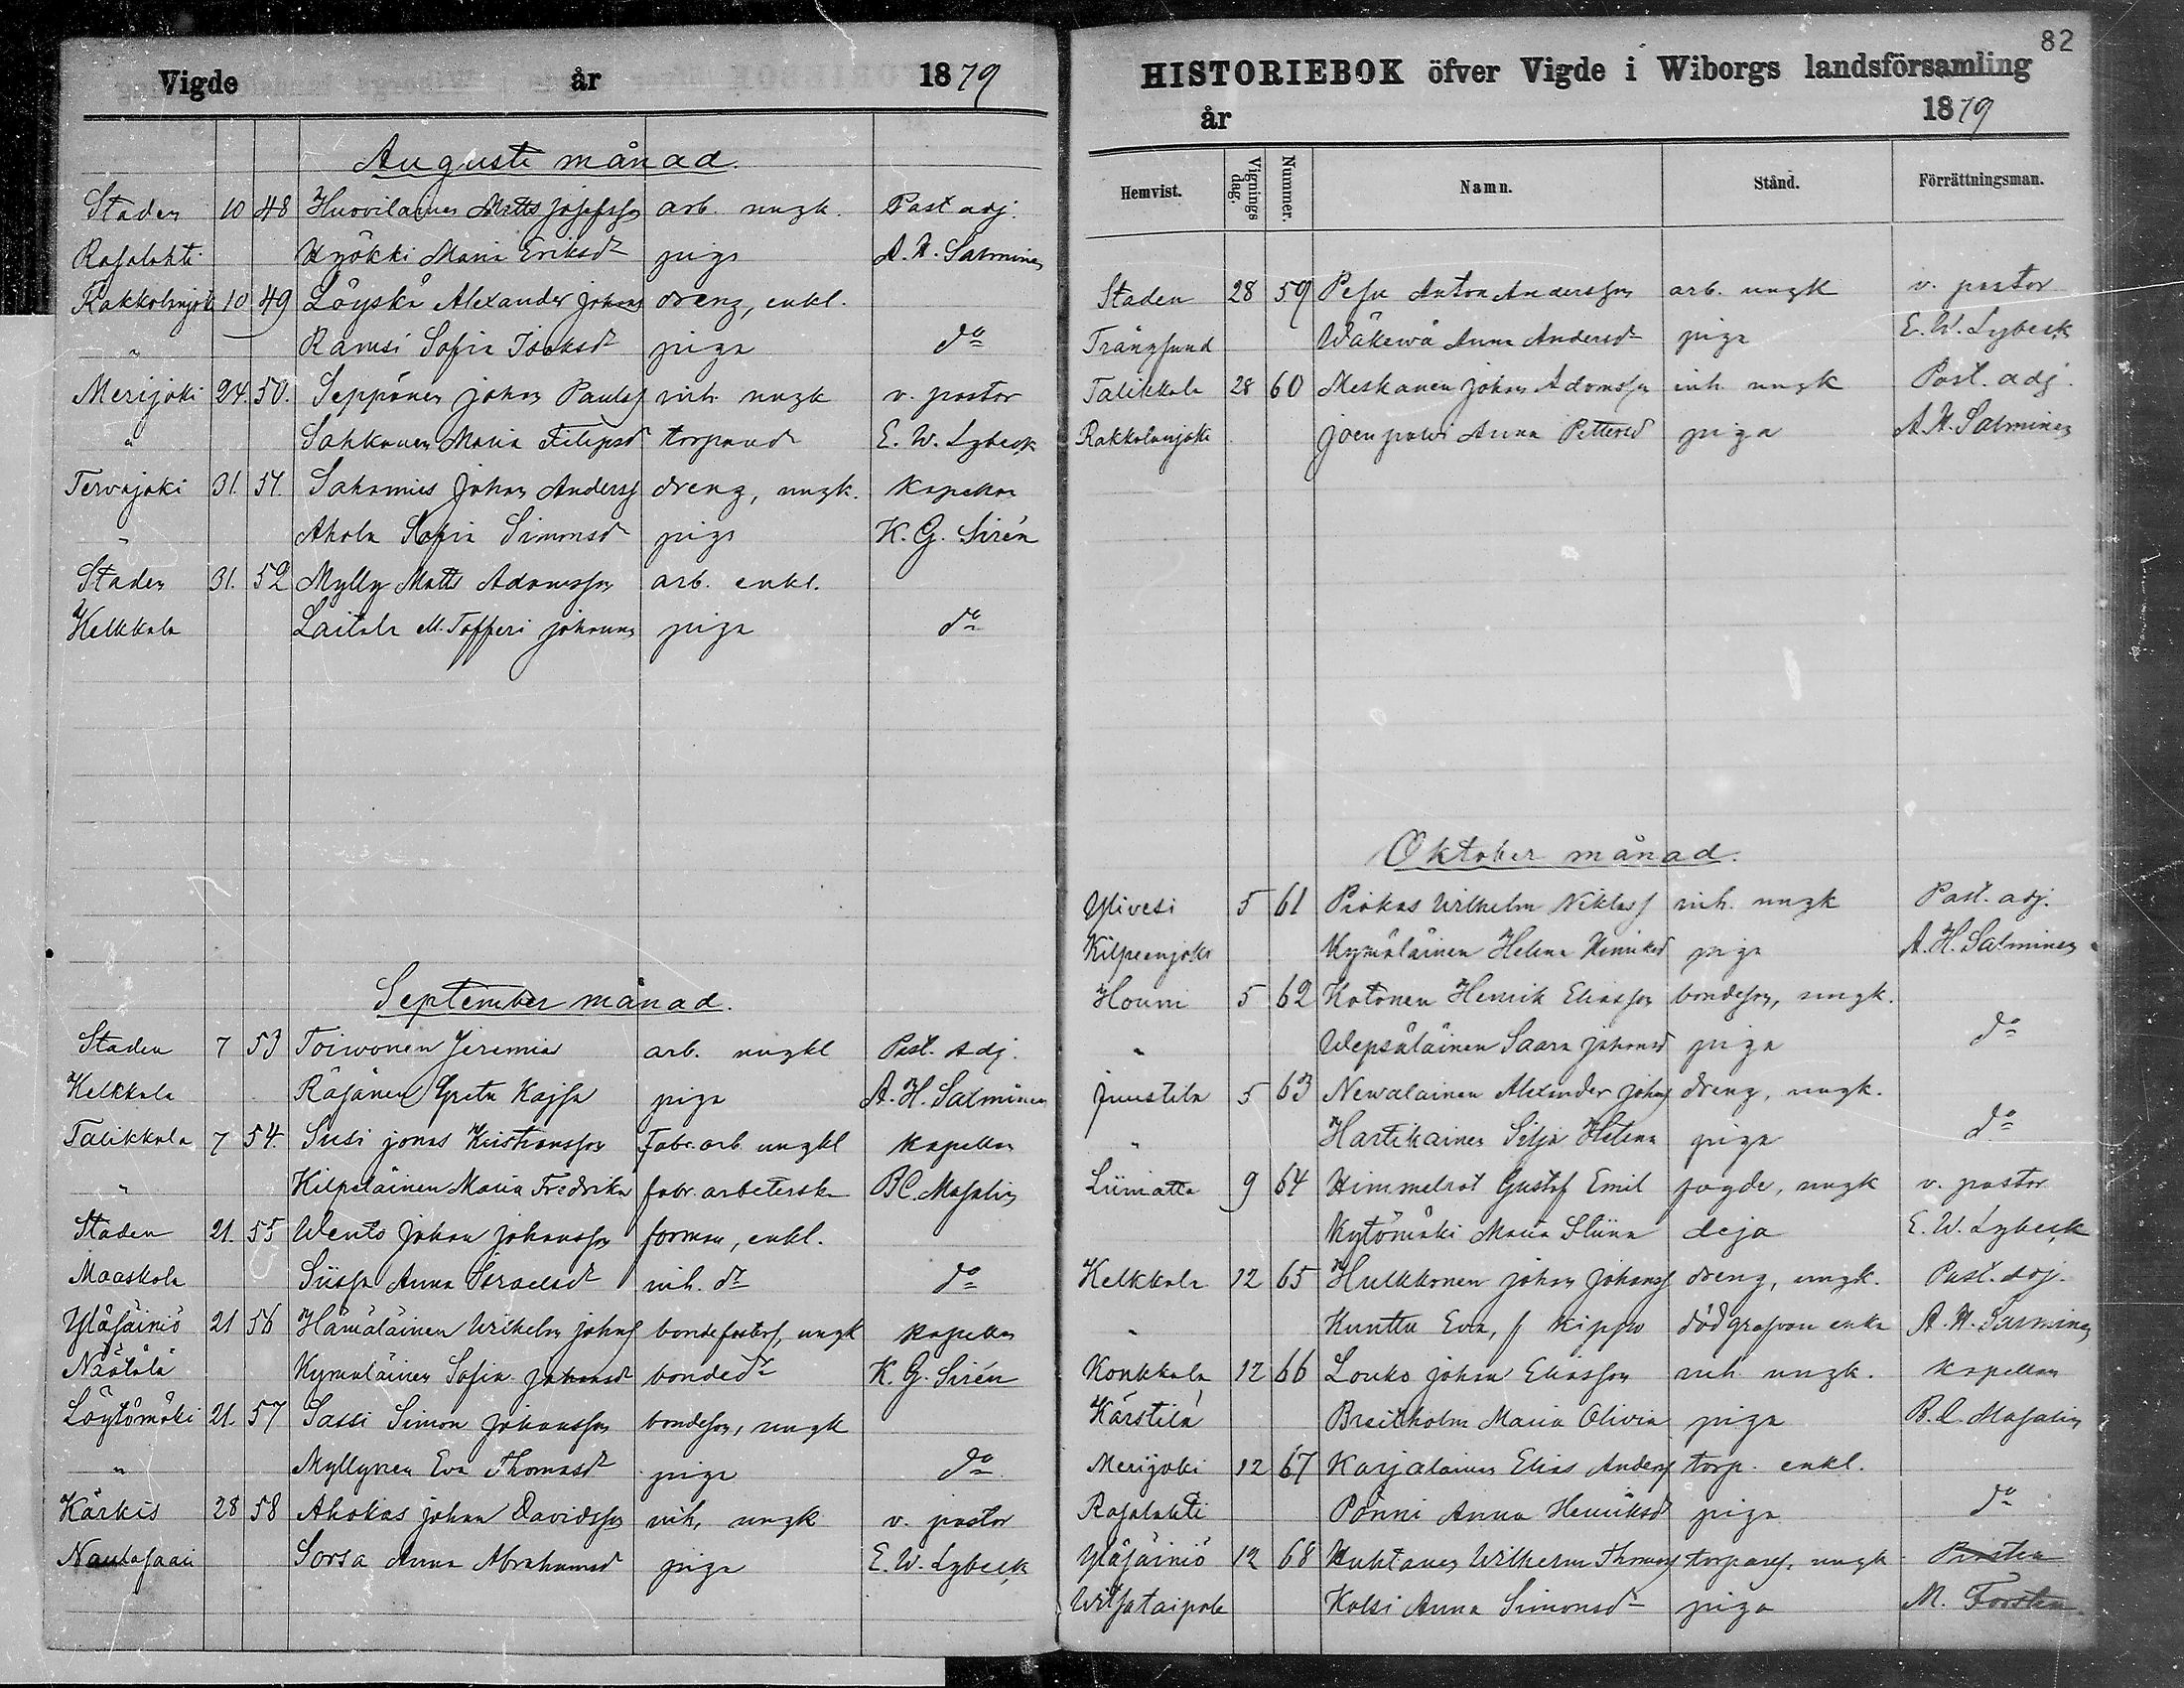 Vigde år 1879
Augusti månad.
Staden 10 48 Huovilainen Matts Josefsson arb. ungk. Past adj.
Rasalahti Kyökki Maria Eriksdr piga A. H. Salminen
Rakkolanjoki 10 49 Löyskä Alexander Johans dreng, enkl.
" Ramsi Sofia Isaksdr piga do
Merijoki 24. 50. Seppänen Johan Paulsf inh. ungk v. pastor
" Sahkonen Maria Filipsd torpared E. W. Lybeck
Tervajoki 31. 51. Sahamies Johan Andersf dreng, ungk. Kapellan
" Ahola Sofia Simonsd piga K. G. Sirén
Staden 31. 52 Mylly Matts Adamsson arb. enkl.
Kelkkala Laitala M. Toffери piga do
September månad.
Staden 7 53 Toiwonen Jeremia arb. ungkl Past. Adj.
Kelkkala Räsänen Greta Kajsa piga A. H. Salminen
Talikkala 7 54 Susi Jonas Kristiansson Fabr. arb. ungkl Kapellan
" Kilpeläinen Maria Fredrika fabr. arbeterska B C. Masalin
Staden 21. 55 Wento Johan Johansson forman, enkl.
Maaskola Siissa Anna Israelsd inh. dr do
Yläsäiniö 21 56 Hämäläinen Wilhelm Johansf bondefosters, ungk Kapellan
Näätälä Kymäläinen Sofia Johansd bondedr K. G. Sirén
Löytömäki 21. 57 Sassi Simon Johansson bondeson, ungk
" Myllynen Eva Thomasd piga do
Kärkis 28 58 Ahokas Johan Davidsson inh, ungk v. pastor
Nautasaari Sorsa Anna Abrahamsd piga E. W. Lybeck
82
HISTORIEBOK öfver Vigde i Wiborgs landsförsamling
år 1879
Hemvist. Vignings dag. Nummer. Namn. Stånd. Förrättningsman.
Staden 28 59 Pesu Anton Andersson arb. ungk v. pastor
Trångsund Wäkewä Anna Andersd piga E. W. Lybeck
Talikkala 28 60 Meskanen Johan Adamsson inh. ungk Past. adj.
Rakkolanjoki Joenpolvi Anna Pettersd piga A. H. Salminen
Oktober månad.
Ylivesi 5 61 Piokas Wilhelm Niklasf inh. ungk Past. adj.
Kilpeenjoki Kymäläinen Helena Henriksd piga A. H. Salminen
Houni 5 62 Kotonen Henrik Eliasson bondeson, ungk.
" Wepsäläinen Saara Johansd piga do
Juustila 5 63 Newalainen Alexander Johansf dreng, ungk.
" Hartikainen Silja Helena piga do
Liimatta 9 64 Himmelrot Gustaf Emil fogde, ungk v. pastor
Kytömäki Maria Stiina deja E. W. Lybeck
Kelkkala 12 65 Hulkkonen Johan Johansf dreng, ungk. Past. adj.
" Kunttu Eva, f Kippo dödgrafvare enka A. H. Salminen
Konkkala 12 66 Louko Johan Eliasson inh. ungk. Kapellan
Kärstilä Breitholm Maria Olivia piga B. C. Masalin
Merijoki 12 67 Karjalainen Elias Andersf torp. enkl.
Rasalahti Pönni Anna Henriksd piga do
Yläsäiniö 12 68 Huhtanen Wilhelm Thomasf torpares. ungk Prosten
Wilsataipale Kolsi Anna Simonsd piga M. Forstén